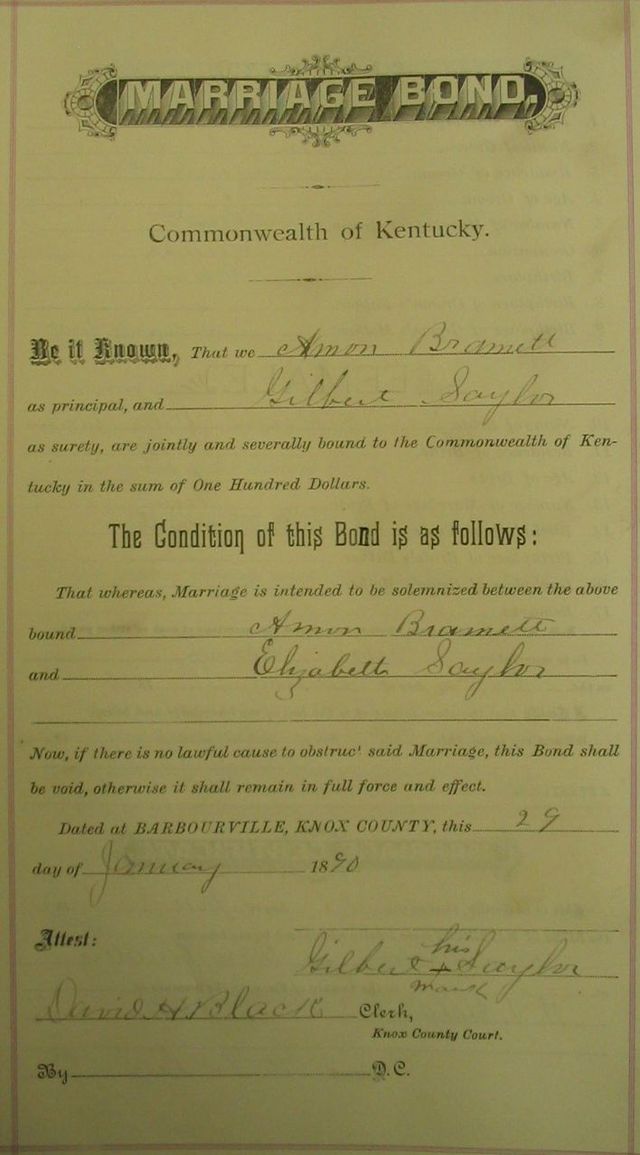 MARRIAGE BOND,
Commonwealth of Kentucky.
Be it Known, That we Amon Bramett
as principal, and Gilbert Saylor
as surety, are jointly and severally bound to the Commonwealth of Ken-
tucky in the sum of One Hundred Dollars.
The Condition of this Bond is as follows:
That whereas, Marriage is intended to be solemnized between the above
bound Amon Bramett
and Elizabeth Saylor
Now, if there is no lawful cause to obstruct said Marriage, this Bond shall
be void, otherwise it shall remain in full force and effect.
Dated at BARBOURVILLE, KNOX COUNTY, this 29
day of January 1890
Attest:
his
Gilbert + Saylor
mark
David H. Black Clerk,
Knox County Court.
By D.C.